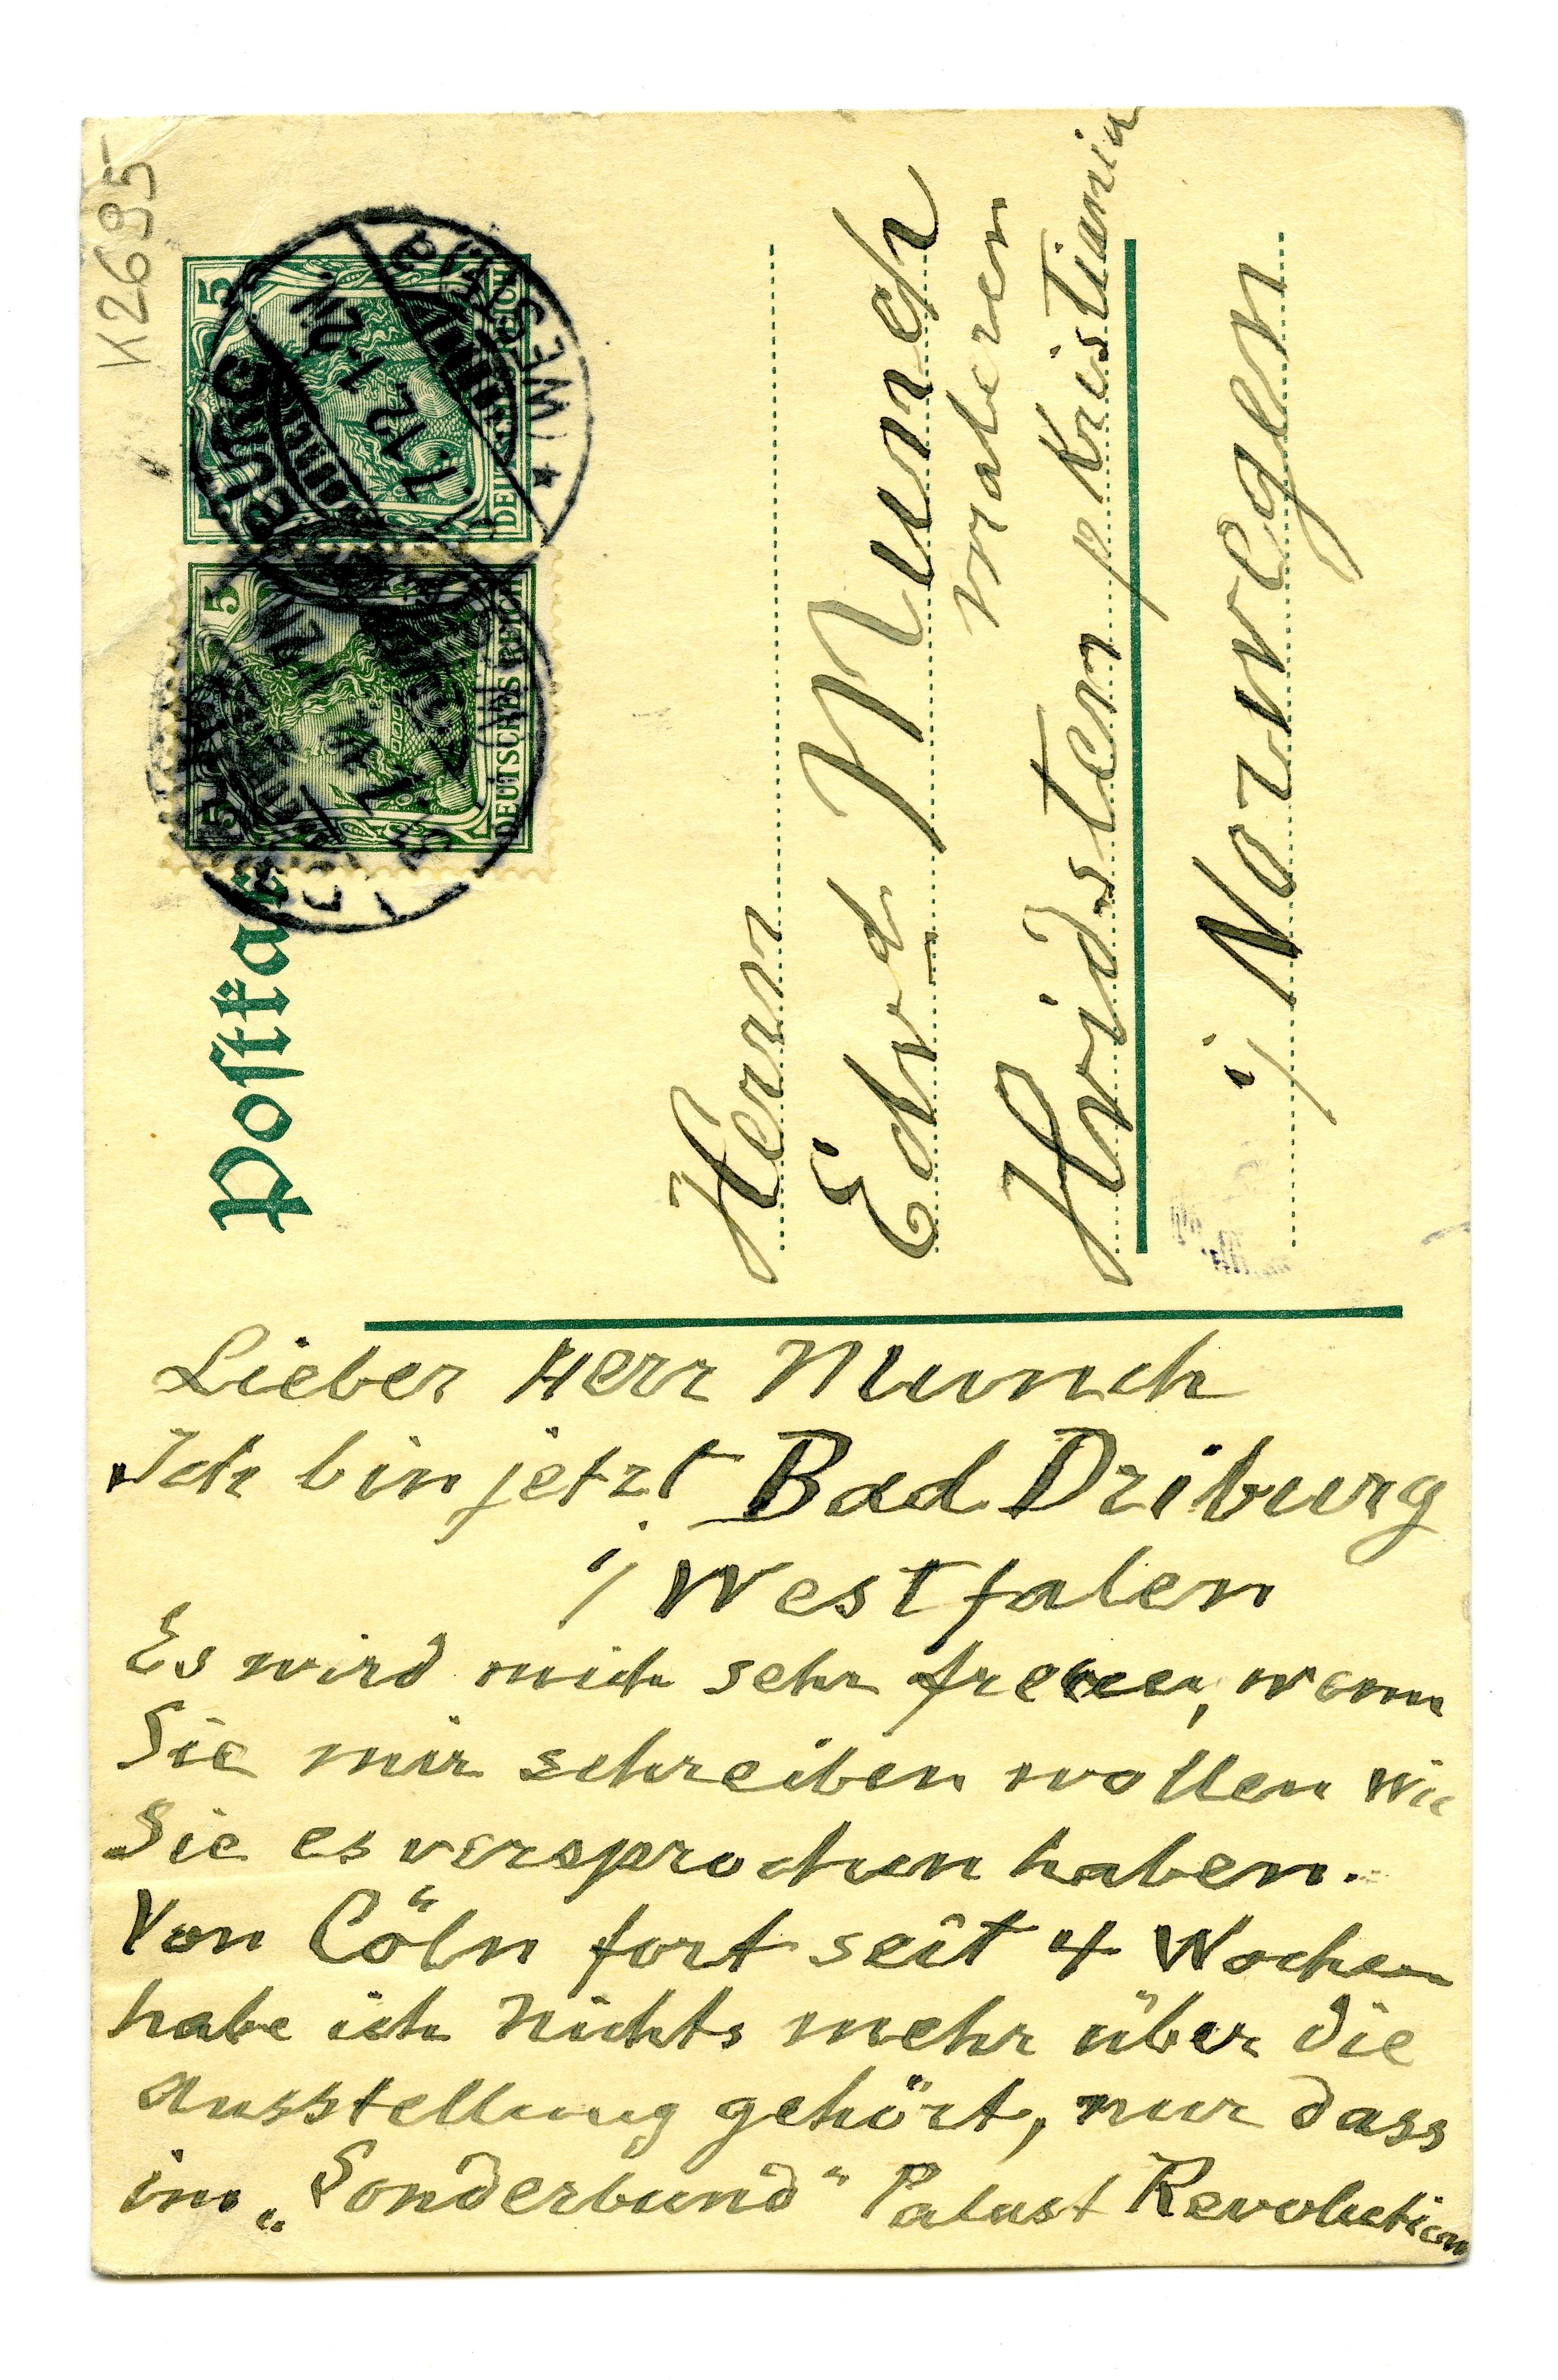 K2695
Postkar
5
DEUTSCHES REICH
5 5
DEUTSCHES REICH
(WESTF.)
1.12
1-2N.
Herrn
Edvd Munch
maleren
Hvidsten p Kristiania
i/ Norwegen
Lieber Herr Munch
Ich bin jetzt Bad Driburg
i/ Westfalen
Es wird mich sehr freuen, wenn
Sie mir schreiben wollen wie
Sie es versprochen haben.
Von Cöln fort seit 4 Wochen
habe ich nichts mehr über die
Ausstellung gehört, nur dass
im „Sonderbund" Palast Revolution